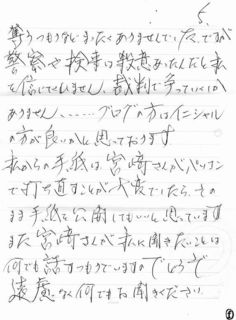 5.
奪うつもりなどまったくありませんでした、ですが
警察や検事は殺意あったんだと私
を信じてせんません、裁判で争っていくしか
ありません、……ブログの方はイニシャル
の方が良いかと思っております
私からの手紙は宮﨑さんがパソコン
で打ち直すことが大変でしたら、その
まま手紙を公開してもいいと思っています
また宮﨑さんが私に聞きたいことは
何でも話すつもりでいますのでどうぞ
遠慮なく何でもお聞きください。